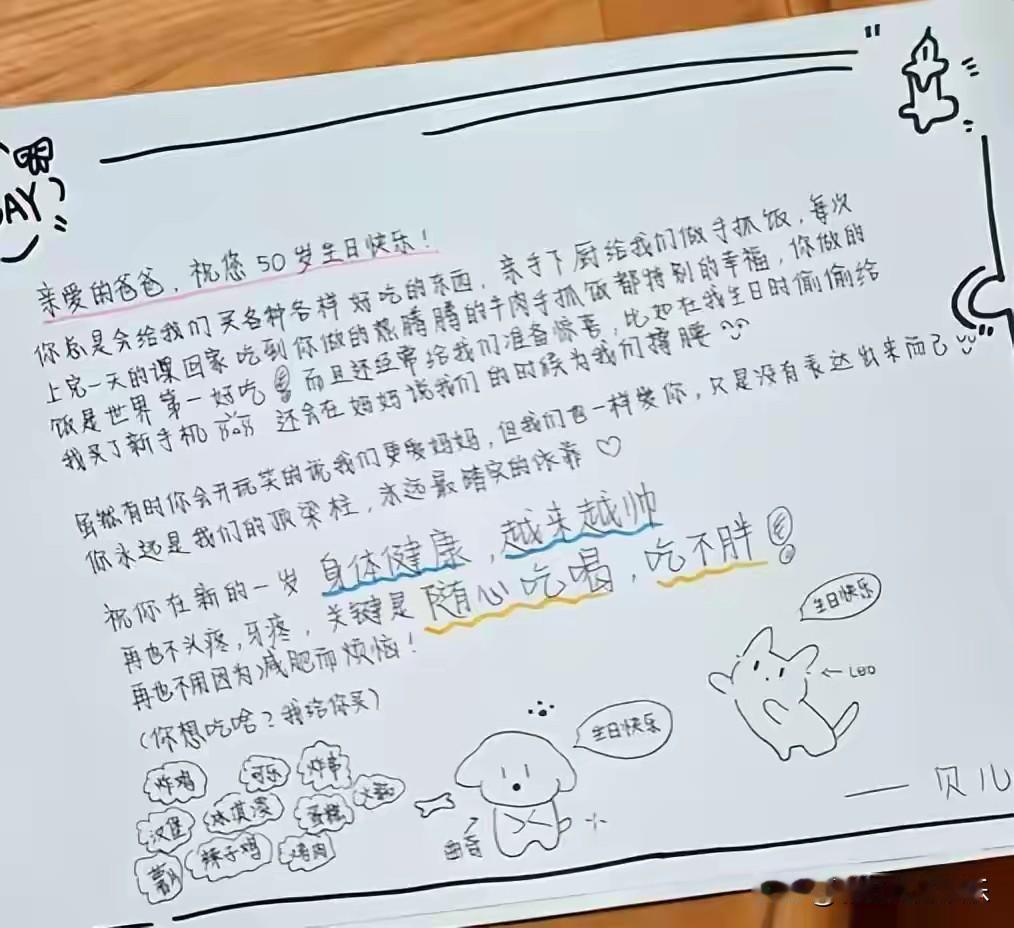 AY
亲爱的爸爸，祝您50岁生日快乐！
你总是会给我们买各种各样好吃的东西，亲手下厨给我们做手抓饭，每次
上完一天的课回家吃到你做的热腾腾的牛肉手抓饭都特别的幸福，你做的
饭是世界第一好吃 而且还经常给我们准备惊喜，比如在我生日时偷偷给
我买了新手机 还会在妈妈说我们的时候为我们撑腰
虽然有时你会开玩笑的说我们更爱妈妈，但我们也一样爱你，只是没有表达出来而已
你永远是我们的顶梁柱，永远最踏实的依靠♡
祝你在新的一岁 身体健康，越来越帅
再也不头疼，牙疼，关键是随心吃喝，吃不胖
再也不用因为减肥而烦恼！
（你想吃啥？我给你买）
炸鸡 可乐 炸串
汉堡 冰淇淋 蛋糕 火锅
薯片 辣子鸡 烤肉
生日快乐
生日快乐
LEO
—— 贝儿
乐